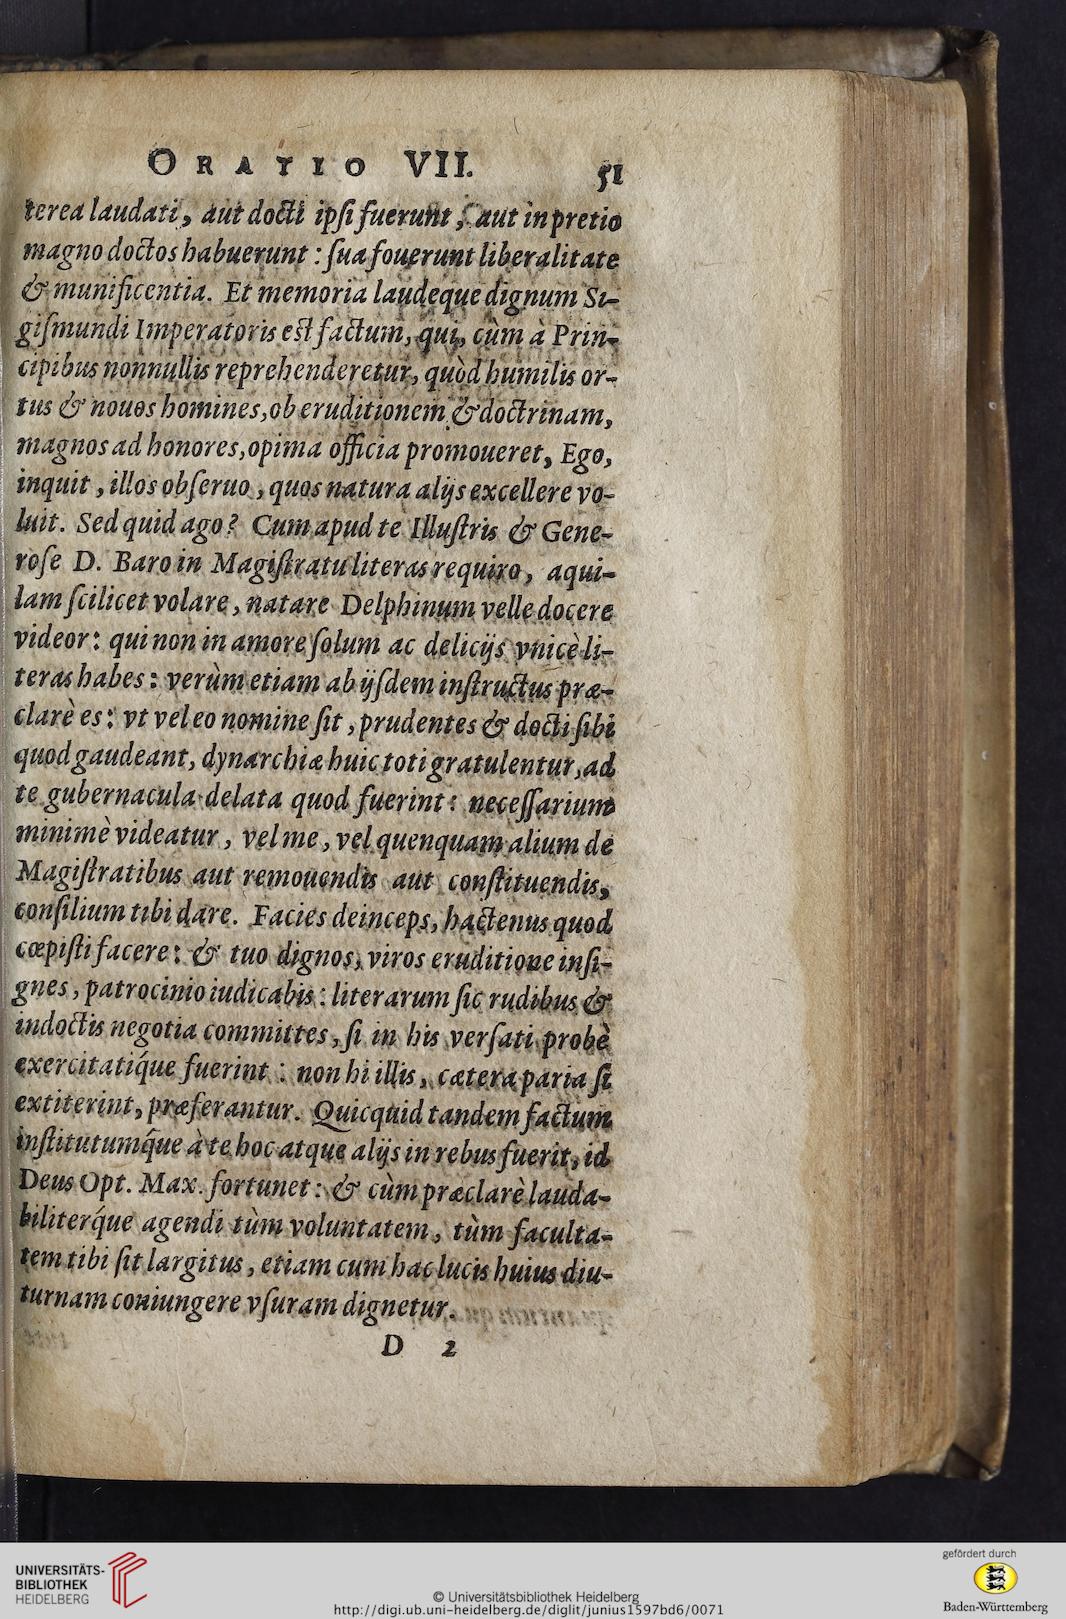 ORATIO VII. 51
terea laudati, aut docti ipſi fuerunt, aut in pretio
magno doctos habuerunt: ſua fouerunt liberalitate
& munificentia. Et memoria laudeque dignum Si-
giſmundi Imperatoris est factum, qui, cùm à Prin-
cipibus nonnullis reprehenderetur, quòd humilis or-
tus & nouos homines, ob eruditionem & doctrinam,
magnos ad honores, opima officia promoueret, Ego,
inquit, illos obſeruo, quos natura alijs excellere vo-
luit. Sed quid ago? Cum apud te Illuſtris & Gene-
roſe D. Baro in Magiſtratu literas requiro, aqui-
lam ſcilicet volare, natare Delphinum velle docere
videor: qui non in amore ſolum ac delicijs vnicè li-
teras habes: verùm etiam ab ijſdem inſtructus præ-
clarè es: vt vel eo nomine ſit, prudentes & docti ſibi
quod gaudeant, dynarchiæ huic toti gratulentur, ad
te gubernacula delata quod fuerint: neceſſarium
minimè videatur, vel me, vel quenquam alium de
Magiſtratibus aut remouendis aut conſtituendis,
conſilium tibi dare. Facies deinceps, hactenus quod
cœpiſti facere: & tuo dignos, viros eruditione inſi-
gnes, patrocinio iudicabis: literarum ſic rudibus &
indoctis negotia committes, ſi in his verſati probè
exercitatiq́ue fuerint: non hi illis, cætera paria ſi
extiterint, præferantur. Quicquid tandem factum
inſtitutumq́ue à te hoc atque alijs in rebus fuerit, id
Deus Opt. Max. fortunet: & cùm præclarè lauda-
biliterq́ue agendi tùm voluntatem, tùm faculta-
tem tibi ſit largitus, etiam cum hac lucis huius diu-
turnam coniungere vſuram dignetur.
D 2
UNIVERSITÄTS-
BIBLIOTHEK
HEIDELBERG
© Universitätsbibliothek Heidelberg
http://digi.ub.uni-heidelberg.de/diglit/junius1597bd6/0071
gefördert durch
Baden-Württemberg